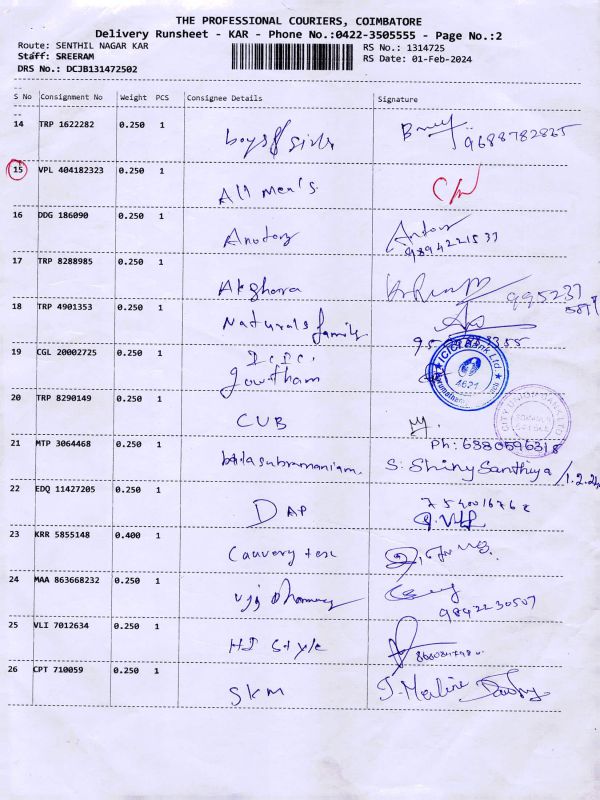 THE PROFESSIONAL COURIERS, COIMBATORE
Delivery Runsheet - KAR - Phone No.:0422-3505555 - Page No.:2
Route: SENTHIL NAGAR KAR
RS No.: 1314725
Staff: SREERAM
RS Date: 01-Feb-2024
DRS No.: DCJB131472502
S No Consignment No Weight PCS Consignee Details Signature
14 TRP 1622282 0.250 1 boys & girls
15 VPL 404182323 0.250 1 All men's
16 DDG 186090 0.250 1
9894221533
17 TRP 8288985 0.250 1 Akshara
18 TRP 4901353 0.250 1 Naturals family
19 CGL 20002725 0.250 1 Gowtham
ICICI Bank Ltd
4621
20 TRP 8290149 0.250 1 CUB
Ph: 6380596318
21 MTP 3064468 0.250 1 balasubramaniam. S. Shiny Santhiya / 1.2.24
22 EDQ 11427205 0.250 1 DAP
23 KRR 5855148 0.400 1 Cauvery tex
24 MAA 863668232 0.250 1 Pharmacy
9842230507
25 VLI 7012634 0.250 1 HI Style
26 CPT 710059 0.250 1 SKM